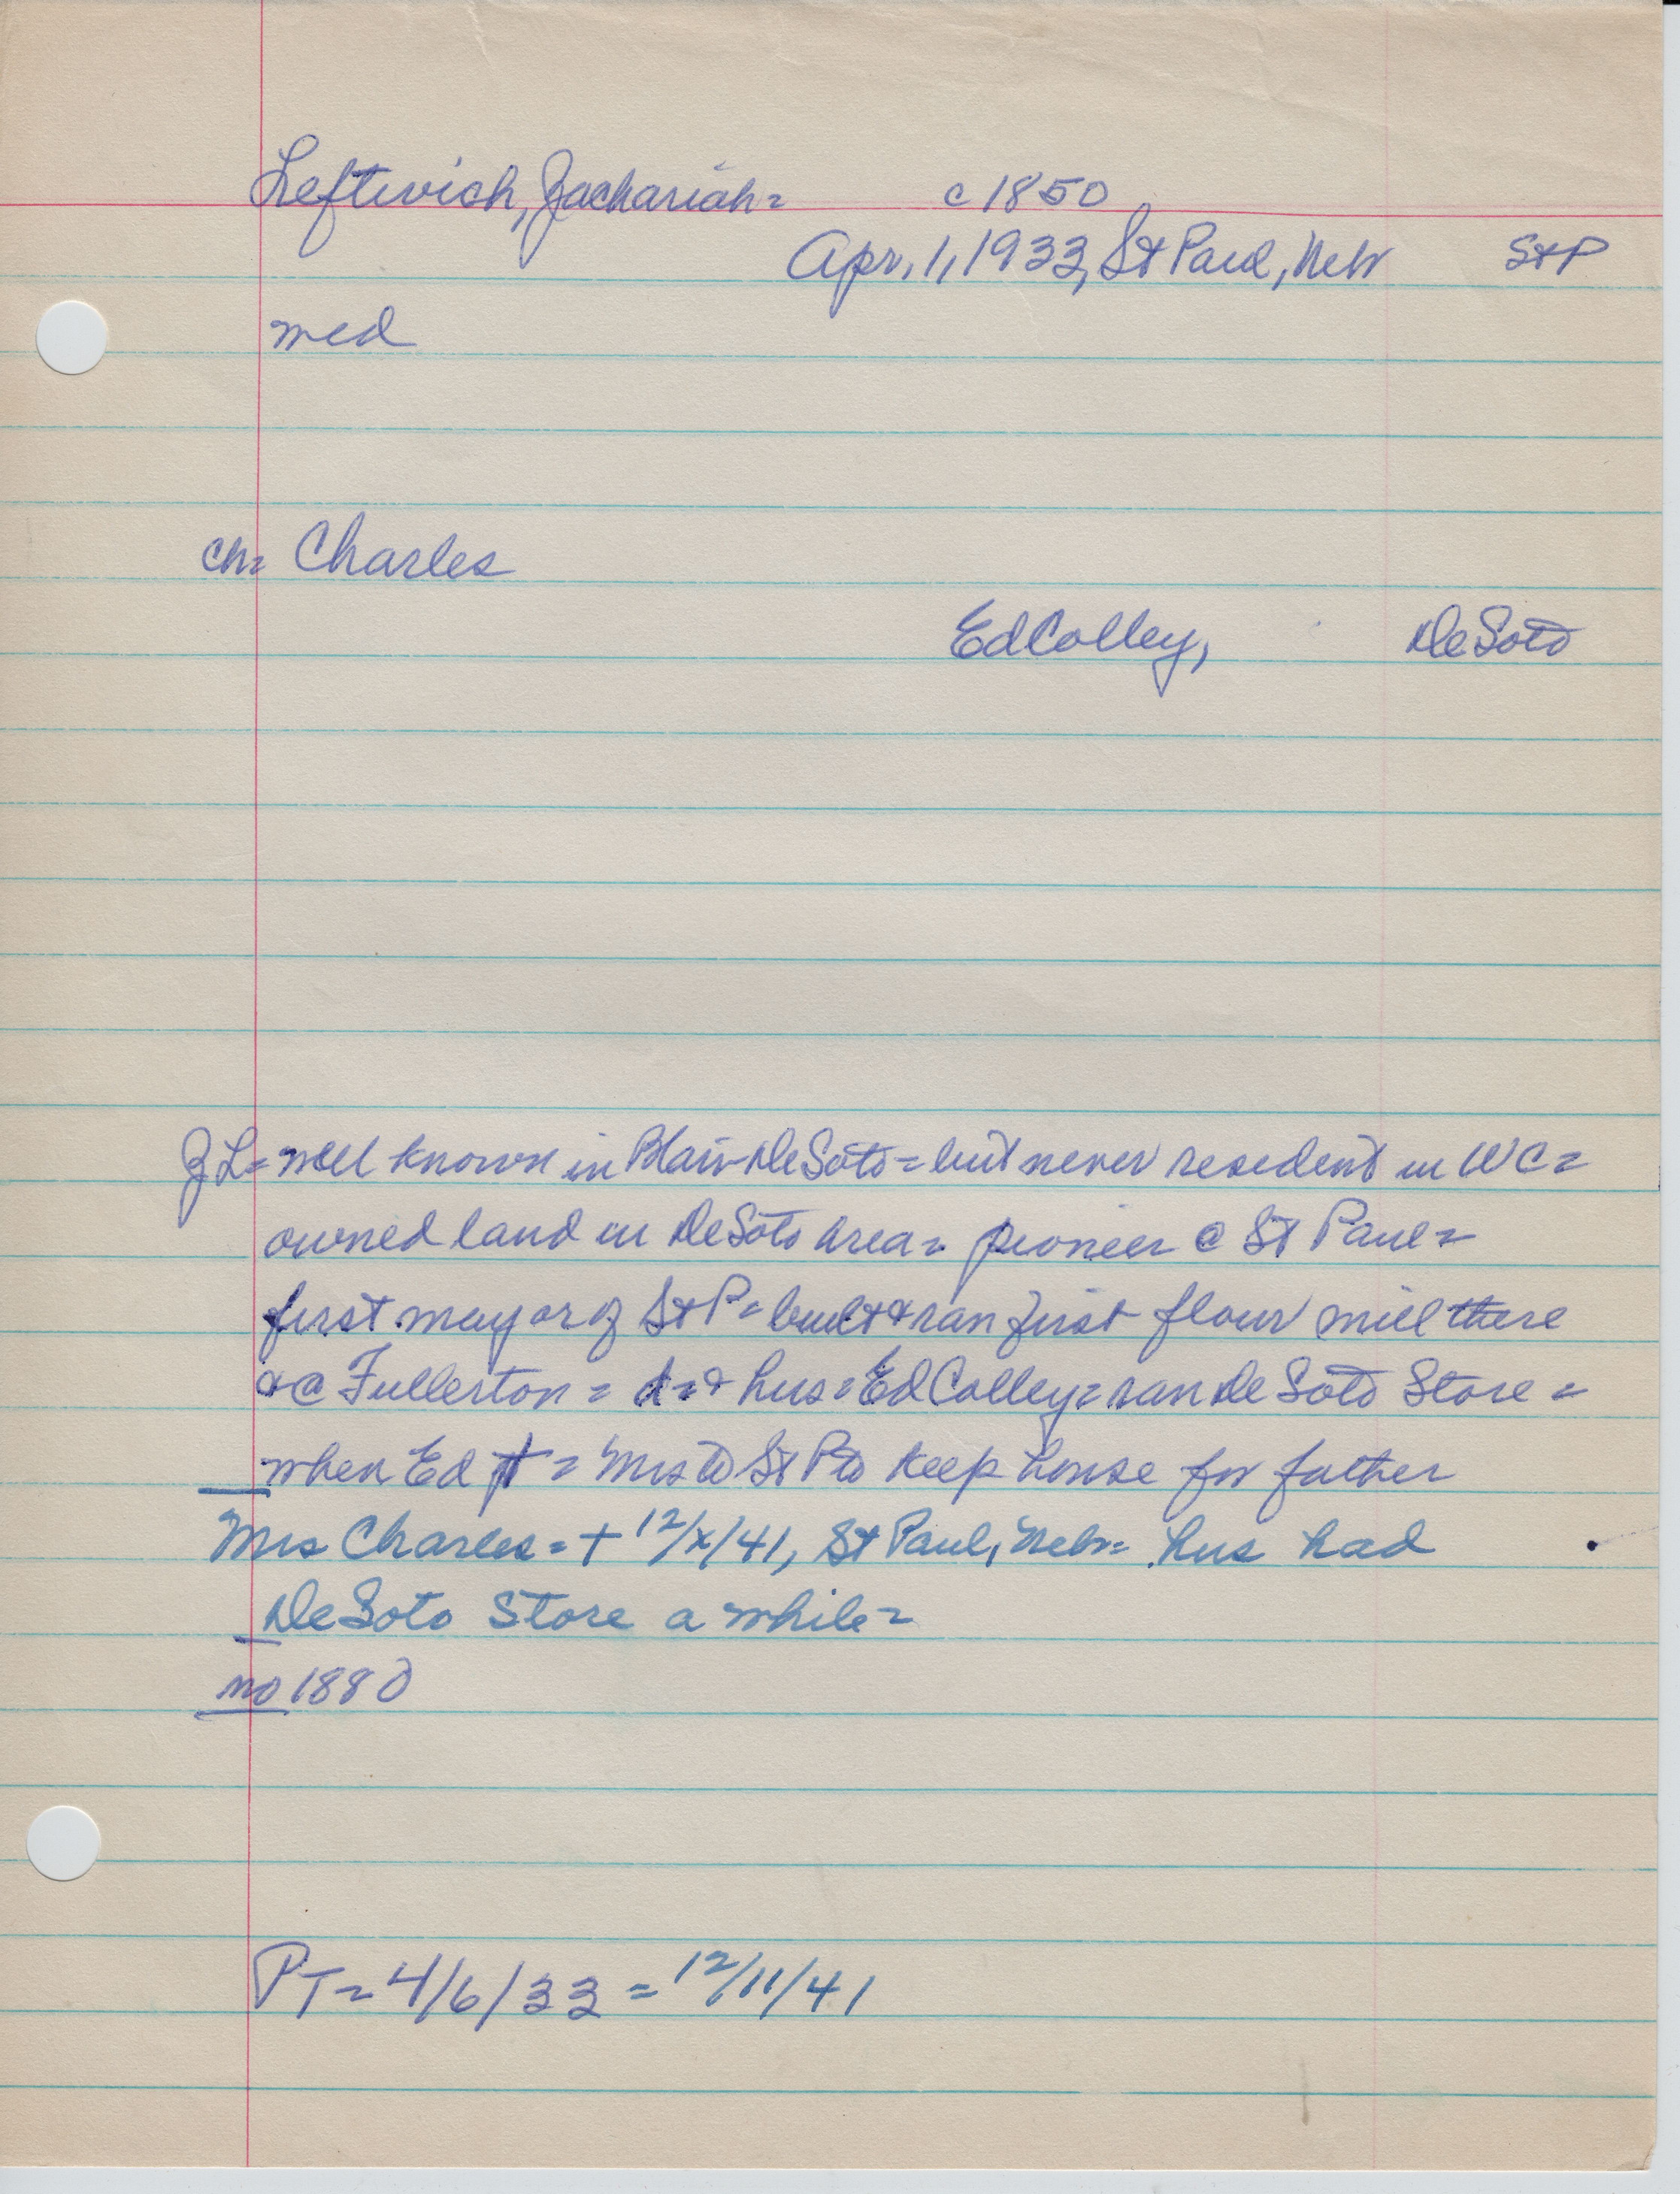 Leftwich, Zachariah = c 1850
Apr. 1, 1933, St Paul, Nebr St P
med
ch = Charles
Ed Colley, DeSoto
Z L = well known in Blair-DeSoto = but never resident in W C =
owned land in DeSoto area = pioneer @ St Paul =
first mayor of St P = built & ran first flour mill there
& @ Fullerton = d = & hus = Ed Colley = ran DeSoto Store =
when Ed † = Mrs to St P to keep house for father
Mrs Charles = + 12/x/41, St Paul, Nebr = hus had
DeSoto Store a while =
no 1880
PT = 4/6/33 = 12/11/41